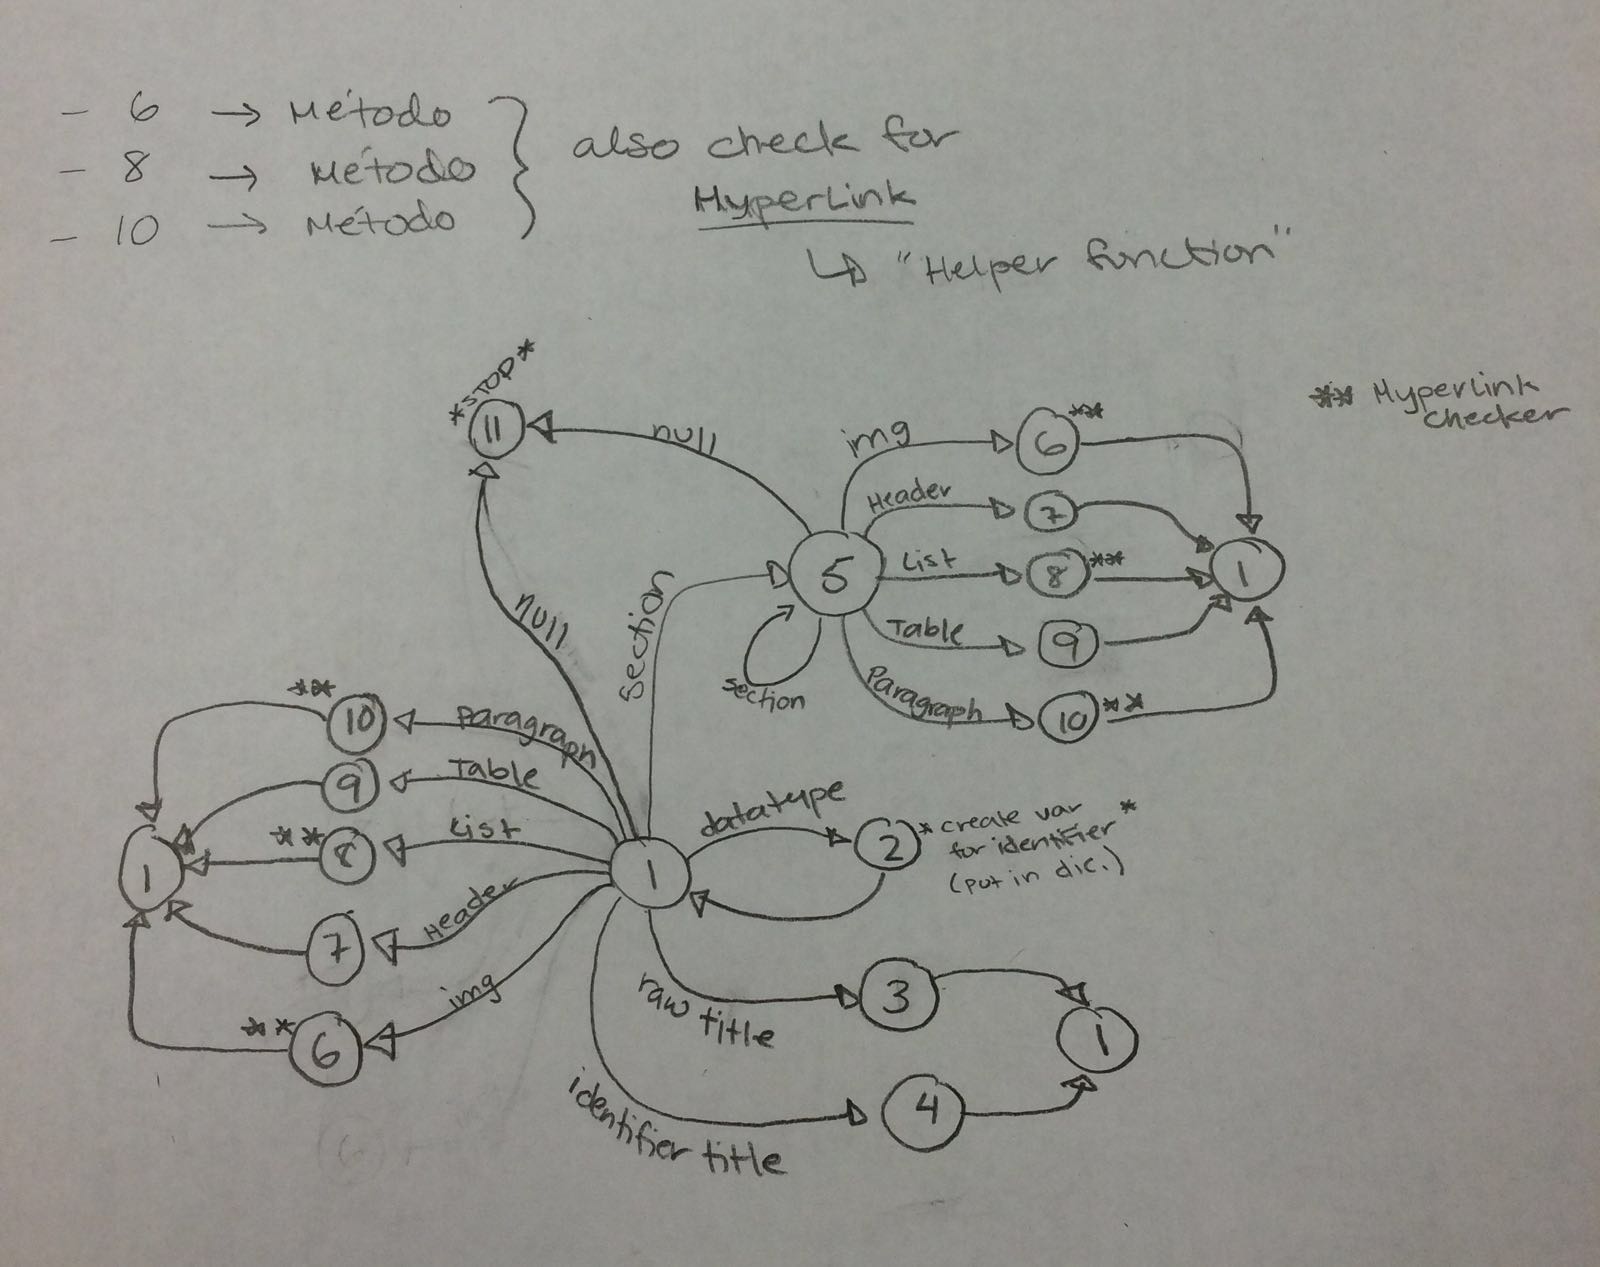 - 6 → Método
- 8 → Método
- 10 → Método
also check for
HyperLink
↳ "Helper function"
** HyperLink
checker
*STOP*
11
null
img
6 **
Header
7
5
List
8 **
1
Table
9
Paragraph
10 **
section
section
null
** 10
Paragraph
9
Table
** 8
List
1
7
Header
** 6
img
1
datatype
2
* create var *
for identifier
(put in dic.)
raw title
3
1
identifier title
4